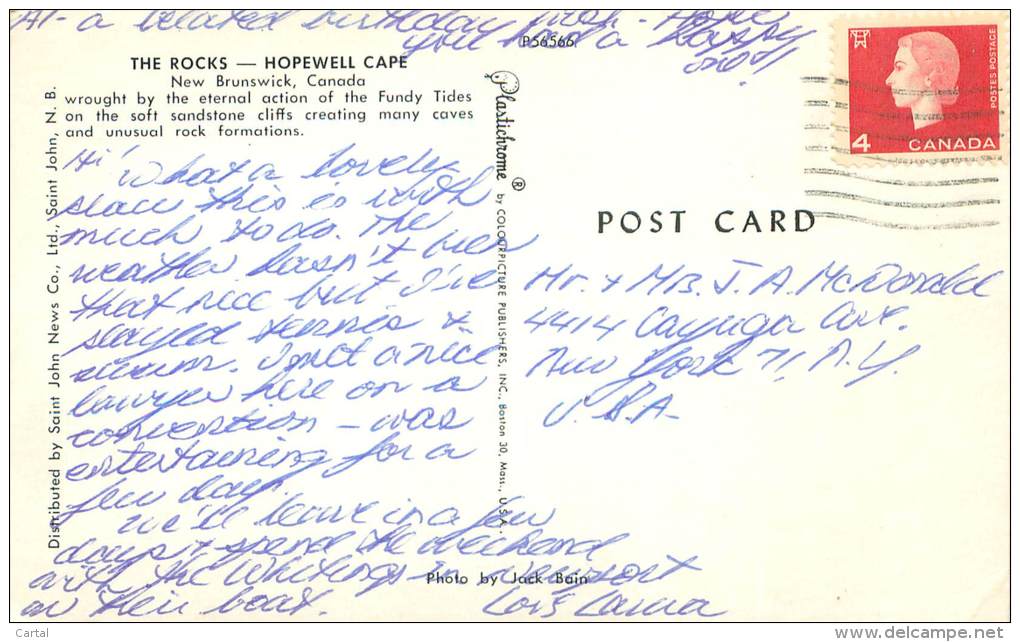 Al - a belated birthday wish - Hope
you had a happy
one!!
P56566
THE ROCKS — HOPEWELL CAPE
New Brunswick, Canada
wrought by the eternal action of the Fundy Tides
on the soft sandstone cliffs creating many caves
and unusual rock formations.
Hi! What a lovely
place this is with
much to do. The
weather hasn't been
that nice but I've
played tennis +
swum. I met a nice
lawyer here on a
convention - was
entertaining for a
few days.
We'll leave in a few
days + spend the weekend
with the Whitings in Newport
on their boat.
Lois
Distributed by Saint John News Co., Ltd., Saint John, N. B.
Plastichrome ® by COLOURPICTURE PUBLISHERS, INC., Boston 30, Mass., U.S.A.
Photo by Jack Bain
POSTES POSTAGE
4 CANADA
POST CARD
Mr. + Mrs. J. A. McDonald
4414 Cayuga Ave.
New York 71, N.Y.
U.S.A.
Cartal
www.delcampe.net